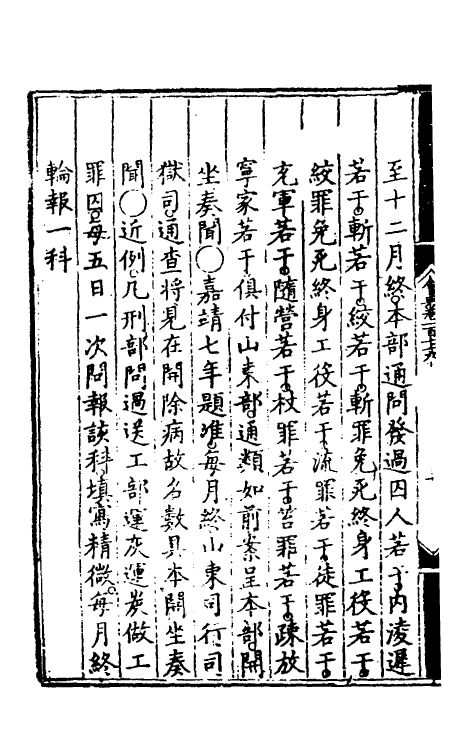 至十二月終本部通問發過囚人若干内淩遲
若干斬若干絞若干斬罪免死終身工役若干
絞罪免死終身工役若干流罪若干徒罪若干
充軍若干隨營若干杖罪若干笞罪若干疎放
寧家若干俱付山東部通類如前案呈本部開
坐奏聞○嘉靖七年題准每月終山東司行司
獄司通查將見在開除病故名數具本開坐奏
聞○近例凡刑部問過送工部運灰運炭做工
罪囚每五日一次問報該科填寫精微每月終
輪報一科